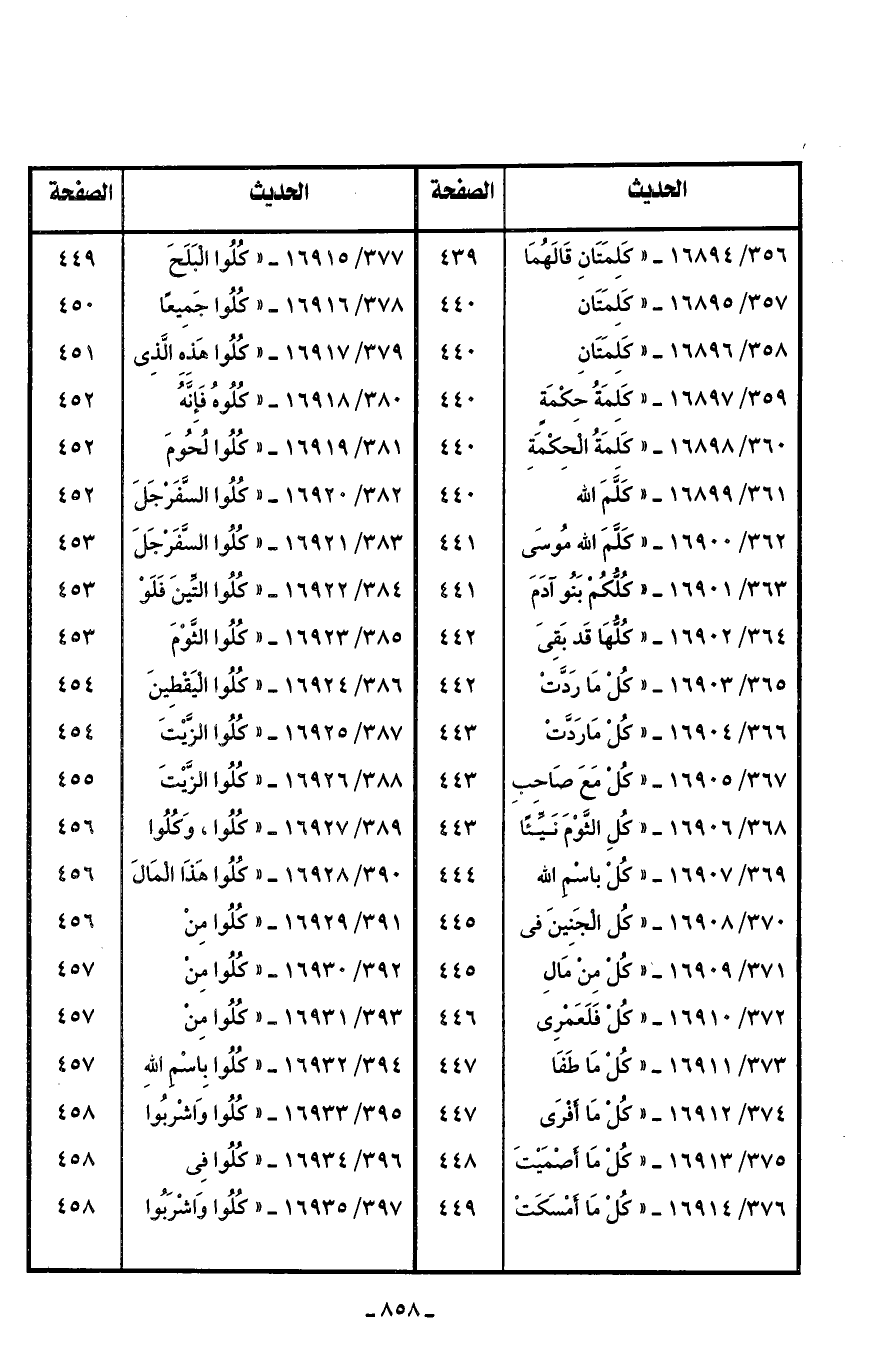 الحديث الصفحة الحديث الصفحة
٣٥٦/ ١٦٨٩٤ ـ « كَلِمَتَانِ قَالَهُمَا ٤٣٩ ٣٧٧/ ١٦٩١٥ ـ « كُلُوا الْبَلَحَ ٤٤٩
٣٥٧/ ١٦٨٩٥ ـ « كَلِمَتَانِ ٤٤٠ ٣٧٨/ ١٦٩١٦ ـ « كُلُوا جَمِيعًا ٤٥٠
٣٥٨/ ١٦٨٩٦ ـ « كَلِمَتَانِ ٤٤٠ ٣٧٩/ ١٦٩١٧ ـ « كُلُوا هَذِهِ الَّذِى ٤٥١
٣٥٩/ ١٦٨٩٧ ـ « كَلِمَةُ حِكْمَةٍ ٤٤٠ ٣٨٠/ ١٦٩١٨ ـ « كُلُوهُ فَإِنَّهُ ٤٥٢
٣٦٠/ ١٦٨٩٨ ـ « كَلِمَةُ الْحِكْمَةِ ٤٤٠ ٣٨١/ ١٦٩١٩ ـ « كُلُوا لُحُومَ ٤٥٢
٣٦١/ ١٦٨٩٩ ـ « كَلَّمَ الله ٤٤٠ ٣٨٢/ ١٦٩٢٠ ـ « كُلُوا السَّفَرْجَلَ ٤٥٢
٣٦٢/ ١٦٩٠٠ ـ « كَلَّمَ الله مُوسَى ٤٤١ ٣٨٣/ ١٦٩٢١ ـ « كُلُوا السَّفَرْجَلَ ٤٥٣
٣٦٣/ ١٦٩٠١ ـ « كُلُّكُمْ بَنُو آدَمَ ٤٤١ ٣٨٤/ ١٦٩٢٢ ـ « كُلُوا التِّينَ فَلَوْ ٤٥٣
٣٦٤/ ١٦٩٠٢ ـ « كُلُّهَا قَد بَقِىَ ٤٤٢ ٣٨٥/ ١٦٩٢٣ ـ « كُلُوا الثَّوْمَ ٤٥٣
٣٦٥/ ١٦٩٠٣ ـ « كُلْ مَا رَدَّتْ ٤٤٢ ٣٨٦/ ١٦٩٢٤ ـ « كُلُوا الْيَقْطِينَ ٤٥٤
٣٦٦/ ١٦٩٠٤ ـ « كُلْ مَارَدَّتْ ٤٤٣ ٣٨٧/ ١٦٩٢٥ ـ « كُلُوا الزَّيْتَ ٤٥٤
٣٦٧/ ١٦٩٠٥ ـ « كُلْ مَعَ صَاحِبِ ٤٤٣ ٣٨٨/ ١٦٩٢٦ ـ « كُلُوا الزَّيْتَ ٤٥٥
٣٦٨/ ١٦٩٠٦ ـ « كُلِ الثَّوْمَ نَيِّئًا ٤٤٣ ٣٨٩/ ١٦٩٢٧ ـ « كُلُوا ، وَكُلُوا ٤٥٦
٣٦٩/ ١٦٩٠٧ ـ « كُلْ بِاسْمِ الله ٤٤٤ ٣٩٠/ ١٦٩٢٨ ـ « كُلُوا هَذَا الْمَالَ ٤٥٦
٣٧٠/ ١٦٩٠٨ ـ « كُلِ الْجَنِينَ فى ٤٤٥ ٣٩١/ ١٦٩٢٩ ـ « كُلُوا مِنْ ٤٥٦
٣٧١/ ١٦٩٠٩ ـ « كُلْ مِنْ مَالِ ٤٤٥ ٣٩٢/ ١٦٩٣٠ ـ « كُلُوا مِنْ ٤٥٧
٣٧٢/ ١٦٩١٠ ـ « كُلْ فَلَعَمْرِى ٤٤٦ ٣٩٣/ ١٦٩٣١ ـ « كُلُوا مِنْ ٤٥٧
٣٧٣/ ١٦٩١١ ـ « كُلْ مَا طَفَا ٤٤٧ ٣٩٤/ ١٦٩٣٢ ـ « كُلُوا بِاسْمِ اللهِ ٤٥٧
٣٧٤/ ١٦٩١٢ ـ « كُلْ مَا أَفْرَى ٤٤٧ ٣٩٥/ ١٦٩٣٣ ـ « كُلُوا وَاشْرَبُوا ٤٥٨
٣٧٥/ ١٦٩١٣ ـ « كُلْ مَا أَصْمَيْتَ ٤٤٨ ٣٩٦/ ١٦٩٣٤ ـ « كُلُوا فِى ٤٥٨
٣٧٦/ ١٦٩١٤ ـ « كُلْ مَا أَمْسَكَتْ ٤٤٩ ٣٩٧/ ١٦٩٣٥ ـ « كُلُوا وَاشْرَبُوا ٤٥٨
ـ ٨٥٨ ـ